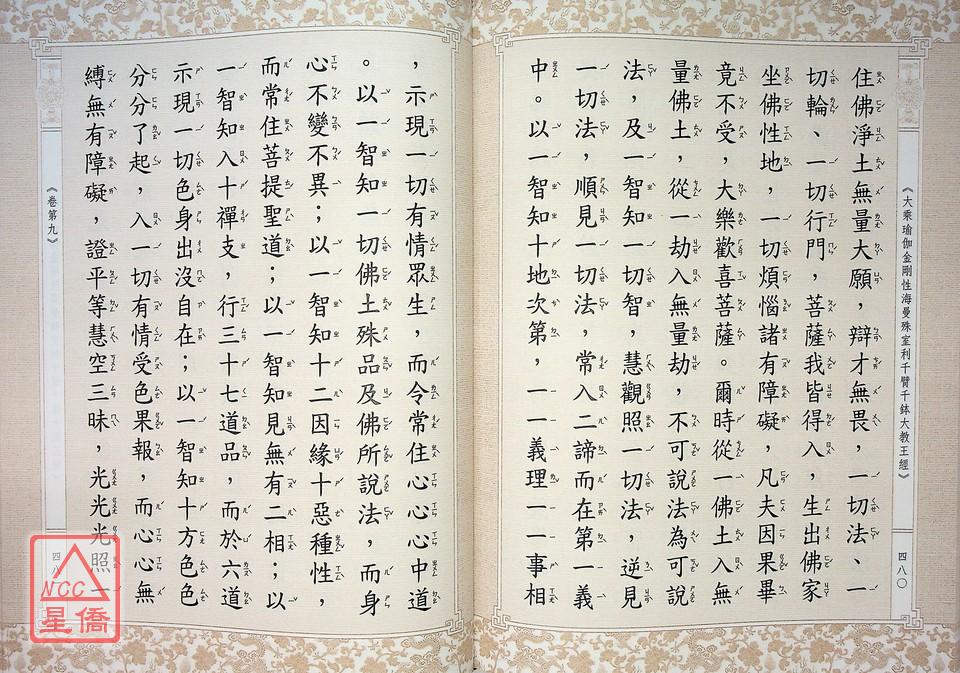 《大乘瑜伽金剛性海曼殊室利千臂千鉢大教王經》
四八〇
住佛淨土無量大願，辯才無畏，一切法、一
切輪、一切行門，菩薩我皆得入，生出佛家
坐佛性地，一切煩惱諸有障礙，凡夫因果畢
竟不受，大樂歡喜菩薩。爾時從一佛土入無
量佛土，從一劫入無量劫，不可說法為可說
法，及一智知一切智，慧觀照一切法，逆見
一切法，順見一切法，常入二諦而在第一義
中。以一智知十地次第，一一義理一一事相
，示現一切有情眾生，而令常住心心中道
。以一智知一切佛土殊品及佛所說法，而身
心不變不異；以一智知十二因緣十惡種性，
而常住菩提聖道；以一智知見無有二相；以
一智知入十禪支，行三十七道品，而於六道
示現一切色身出沒自在；以一智知十方色色
分分了起，入一切有情受色果報，而心心無
縛無有障礙，證平等慧空三昧，光光光照一
《卷第九》
四八
NCC
星僑